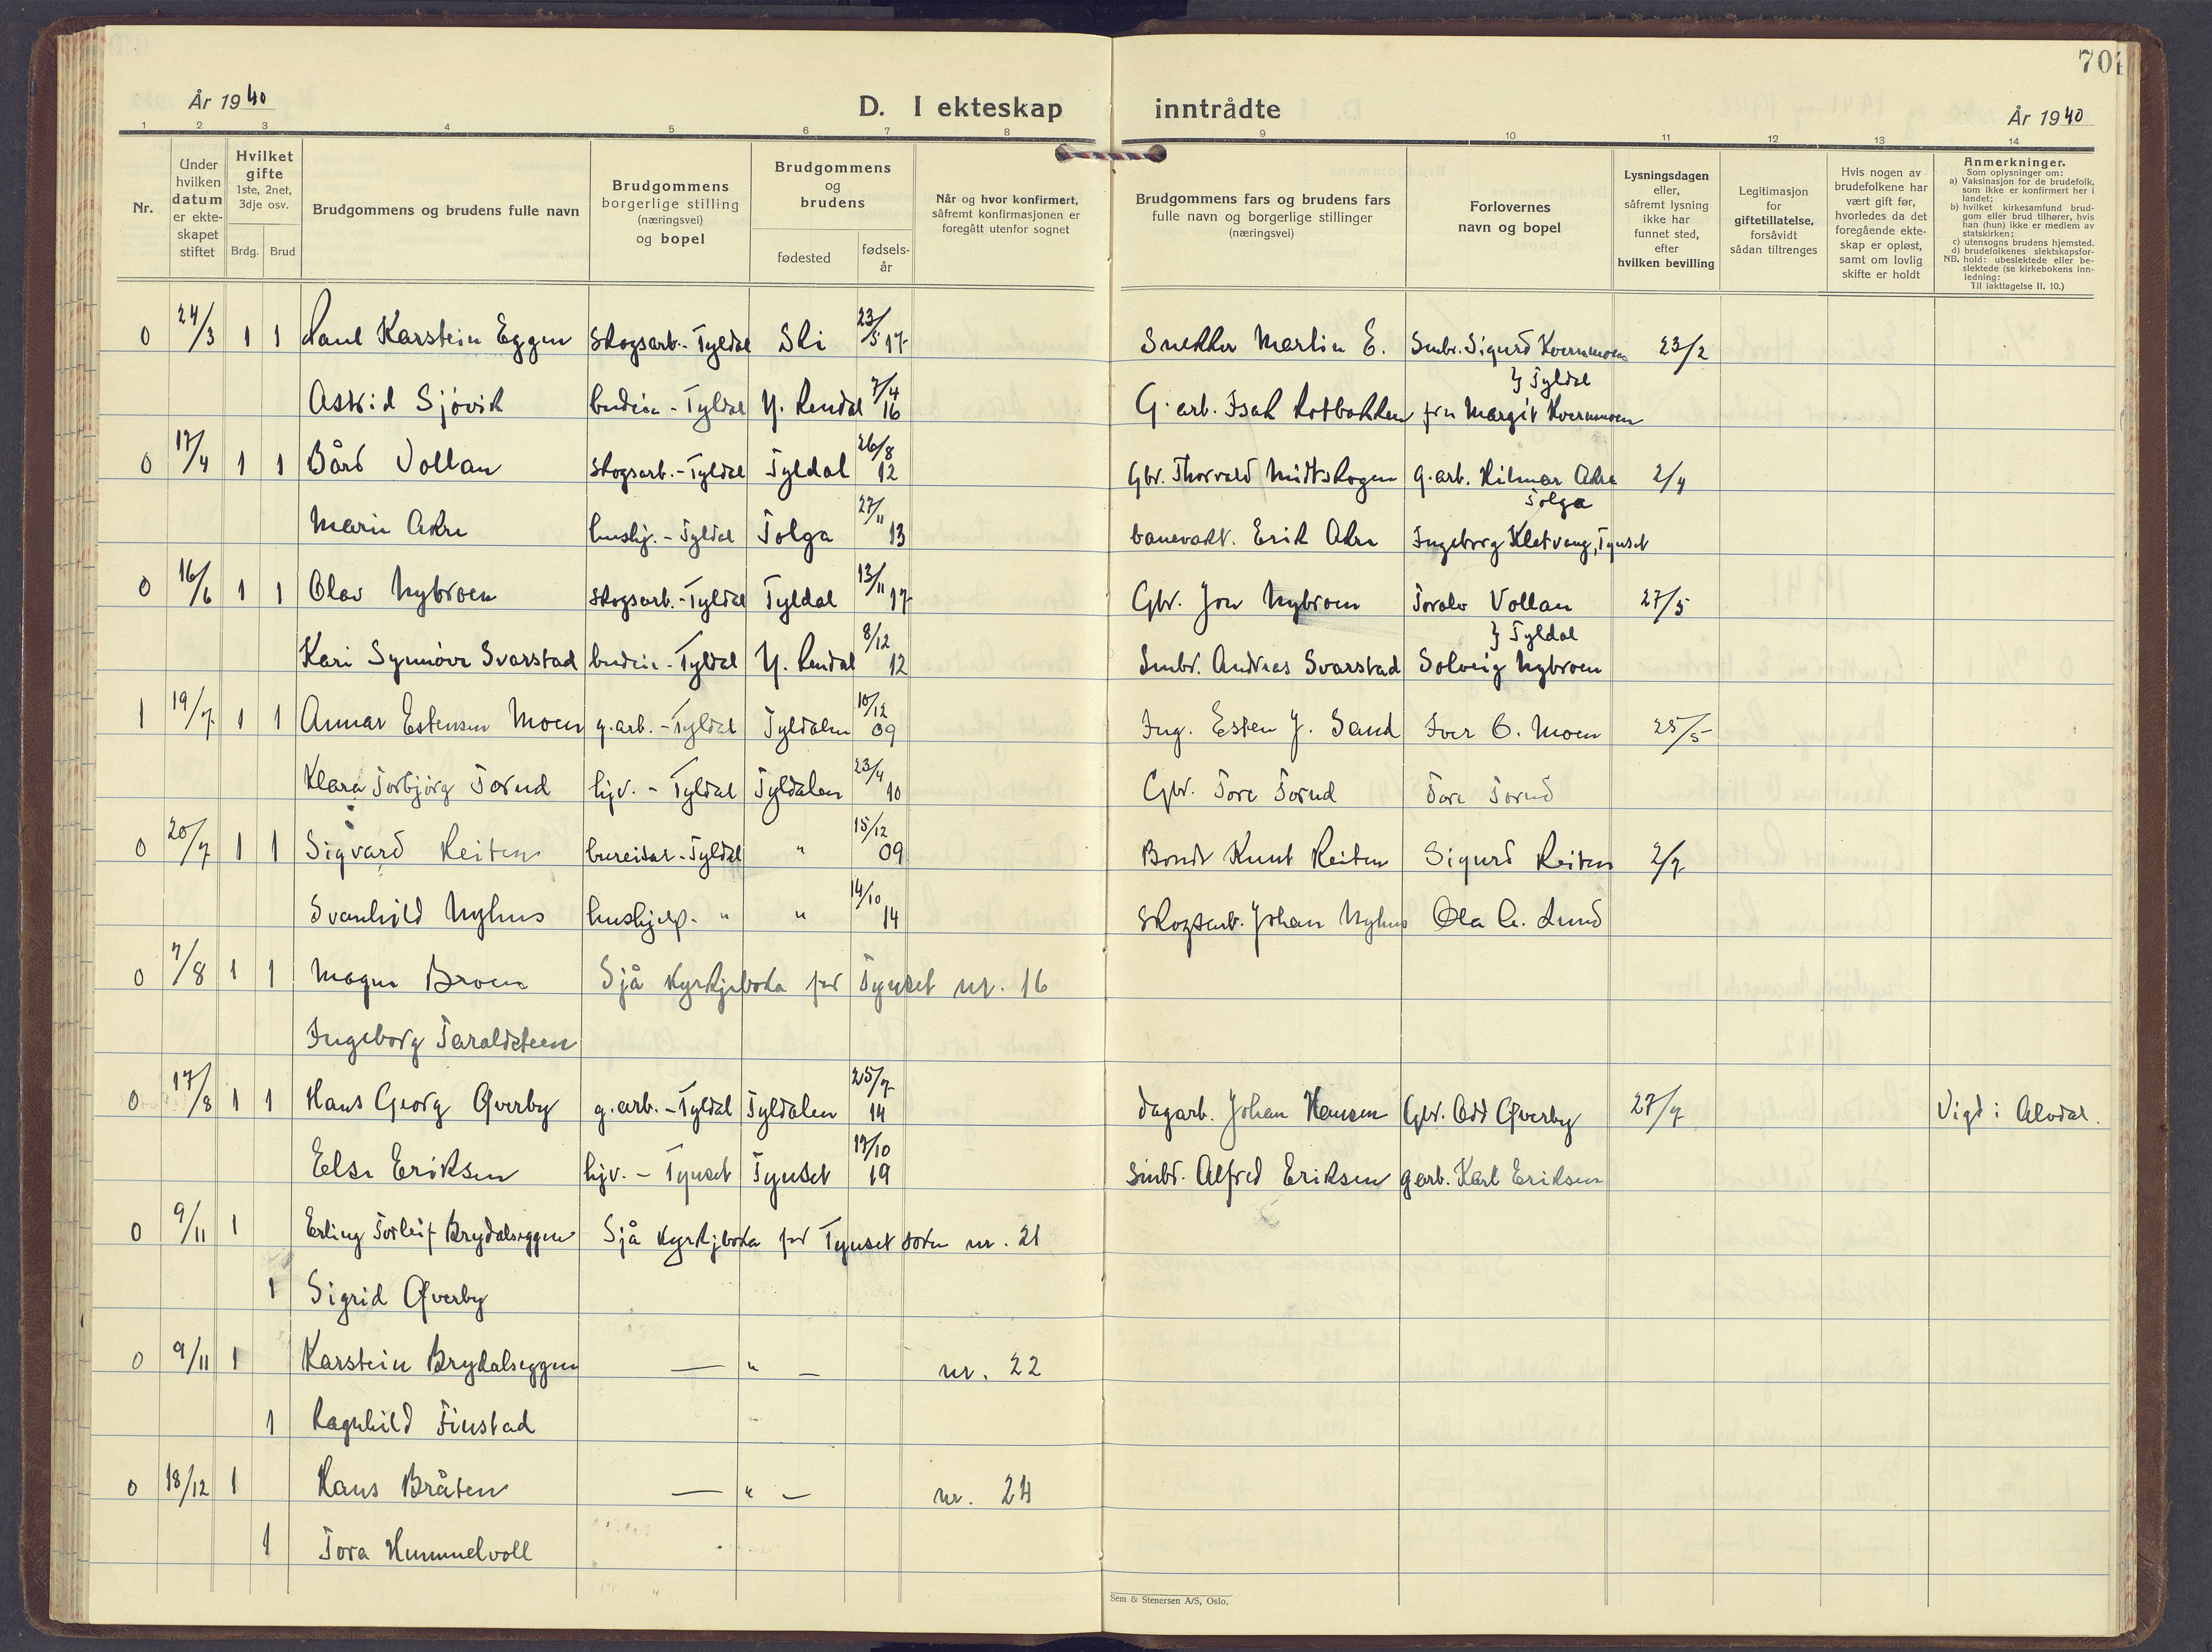 70
År 1940
D. I ekteskap inntrådte
År 1940
1 2 3 4 5 6 7 8 9 10 11 12 13 14
Nr.
Under hvilken datum er ekte-skapet stiftet
Hvilket gifte
1ste, 2net, 3dje osv.
Brdg. Brud
Brudgommens og brudens fulle navn
Brudgommens borgerlige stilling (næringsvei) og bopel
Brudgommens og brudens
fødested
fødsels-år
Når og hvor konfirmert, såfremt konfirmasjonen er foregått utenfor sognet
Brudgommens fars og brudens fars fulle navn og borgerlige stillinger (næringsvei)
Forlovernes navn og bopel
Lysningsdagen eller, såfremt lysning ikke har funnet sted, efter hvilken bevilling
Legitimasjon for giftetillatelse, forsåvidt sådan tiltrenges
Hvis nogen av brudefolkene har vært gift før, hvorledes da det foregående ekte-skap er opløst, samt om lovlig skifte er holdt
Anmerkninger.
Som oplysninger om:
a) Vaksinasjon for de brudefolk, som ikke er konfirmert her i landet;
b) hvilket kirkesamfund brud-gom eller brud tilhører, hvis han (hun) ikke er medlem av statskirken;
c) utensogns brudens hjemsted.
d) brudefolkenes slektskapsfor-hold: ubeslektede eller be-slektede (se kirkebokens inn-ledning:
NB.
Til iakttagelse II. 10.)
0 24/3 1 1 Paul Karstein Eggen Skogsarb.- Tyldal Sli 23/5 17 Snekker Martin E. Smbr. Sigurd Kvernmoen 23/2
} Tyldal
Astrid Sjøvik budeie - Tyldal Y. Rendal 7/4 16 G.arb. Isak Rotbakken fru Margit Kvernmoen
0 17/4 1 1 Bård Vollan Skogsarb.- Tyldal Tyldal 26/8 12 Gbr. Thorvald Midtskogen g.arb. Hilmar Akre 2/4
Tolga
Marie Akre hushj. - Tyldal Tolga 27/11 13 banevakt. Erik Akre Ingeborg Kletvang, Tynset
0 16/6 1 1 Olav Nybroen Skogsarb.- Tyldal Tyldal 13/11 17 Gbr. Jon Nybroen Toralv Vollan 27/5
} Tyldal
Kari Synnøve Svarstad budeie - Tyldal Y. Rendal 8/12 12 Smbr. Andreas Svarstad Solveig Nybroen
1 19/7 1 1 Annar Estensen Moen g.arb. - Tyldal Tyldalen 10/12 09 Ing. Esten J. Sand Iver O. Moen 25/5
Klara Torbjørg Torud hjv. - Tyldal Tyldalen 23/4 10 Gbr. Tore Torud Tore Torud
0 20/7 1 1 Sigvard Reiten bureiser - Tyldal " 15/12 09 Bonde Knut Reiten Sigurd Reiten 2/7
Svanhild Nyhus hushjelp. " " 14/10 14 Skogsarb. Johan Nyhus Ola A. Lund
0 7/8 1 1 Magne Broen Sjå Kyrkjeboka for Tynset nr. 16
Ingeborg Taraldsteen
0 17/8 1 1 Hans Georg Øverby g.arb. - Tyldal Tyldalen 25/7 14 dagarb. Johan Hansen Gbr. Odd Øverby 27/7 Vigd i Alvdal.
Else Eriksen hjv. - Tynset Tynset 17/10 19 Smbr. Alfred Eriksen g.arb. Karl Eriksen
0 9/11 1 Erling Torleif Brydalseggen Sjå Kyrkjeboka for Tynset sokn nr. 21
1 Sigrid Øverby
0 9/11 1 Karstein Brydalseggen — " — nr. 22
1 Ragnhild Finstad
0 18/12 1 Hans Bråten — " — nr. 24
1 Tora Hummelvoll
Sem & Stenersen A/S, Oslo.